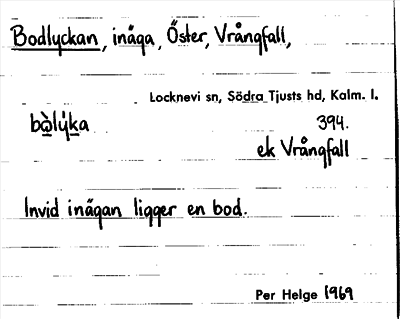 Bodlyckan, inäga, Öster, Vrångfall,
Locknevi sn, Södra Tjusts hd, Kalm. l.
bòlýka 394.
ek Vrångfall
Invid inägan ligger en bod.
Per Helge 1969